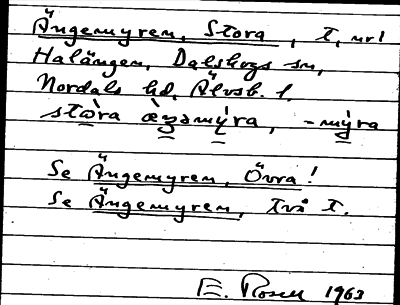 Ängemyren, Stora, t, nr 1
Halängen, Dalskogs sn,
Nordals hd, Älvsb. l.
stòra æ̀ŋəmýra, -mýra
Se Ängemyren, Övra!
Se Ängemyren, två t.
E. Rosell 1963